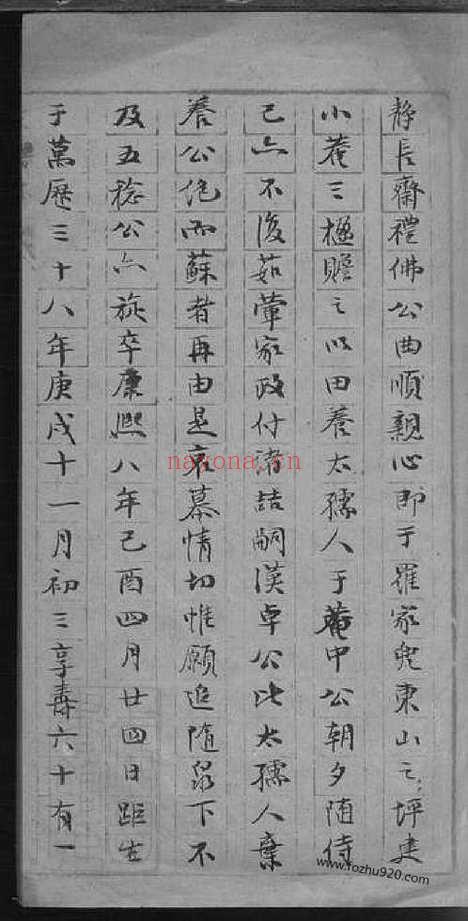 靜長齋禮佛公曲順親心即于羅家兜東山之坪建
小菴三楹贍之以田養太孺人于菴中公朝夕随侍
己亦不復茹葷家政付諸喆嗣漢卓公比太孺人棄
養公绝而蘇者再由是哀慕情切惟願追随泉下不
及五稔公亦旋卒康熙八年己酉四月廿四日距生
于萬厯三十八年庚戌十一月初三享壽六十有一
nayona.cn
www.fozhu920.com